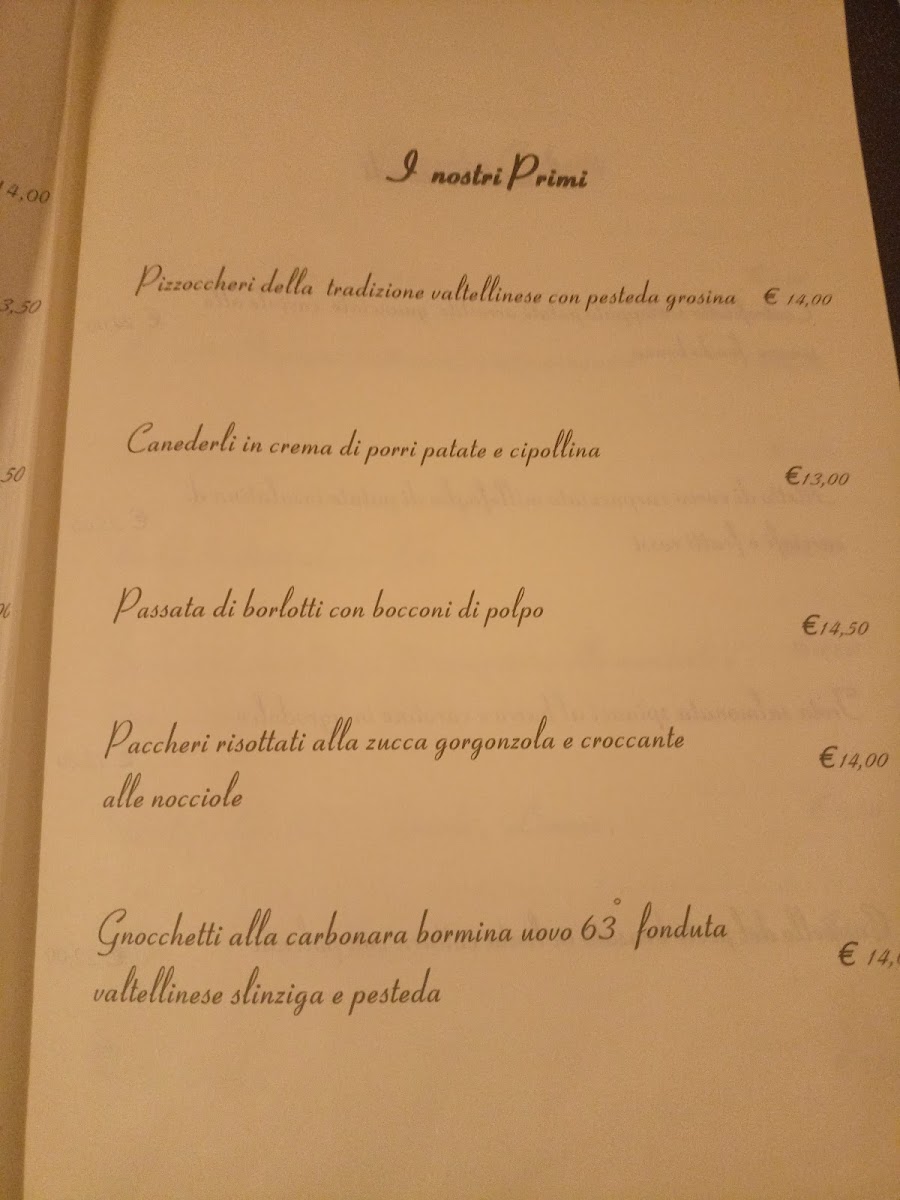 I nostri Primi
Pizzoccheri della tradizione valtellinese con pesteda grosina € 14,00
Canederli in crema di porri patate e cipollina
€13,00
Passata di borlotti con bocconi di polpo
€14,50
Paccheri risottati alla zucca gorgonzola e croccante
€14,00
alle nocciole
Gnocchetti alla carbonara bormina uovo 63° fonduta
€ 14,
valtellinese slinziga e pesteda
4,00
3,50
50